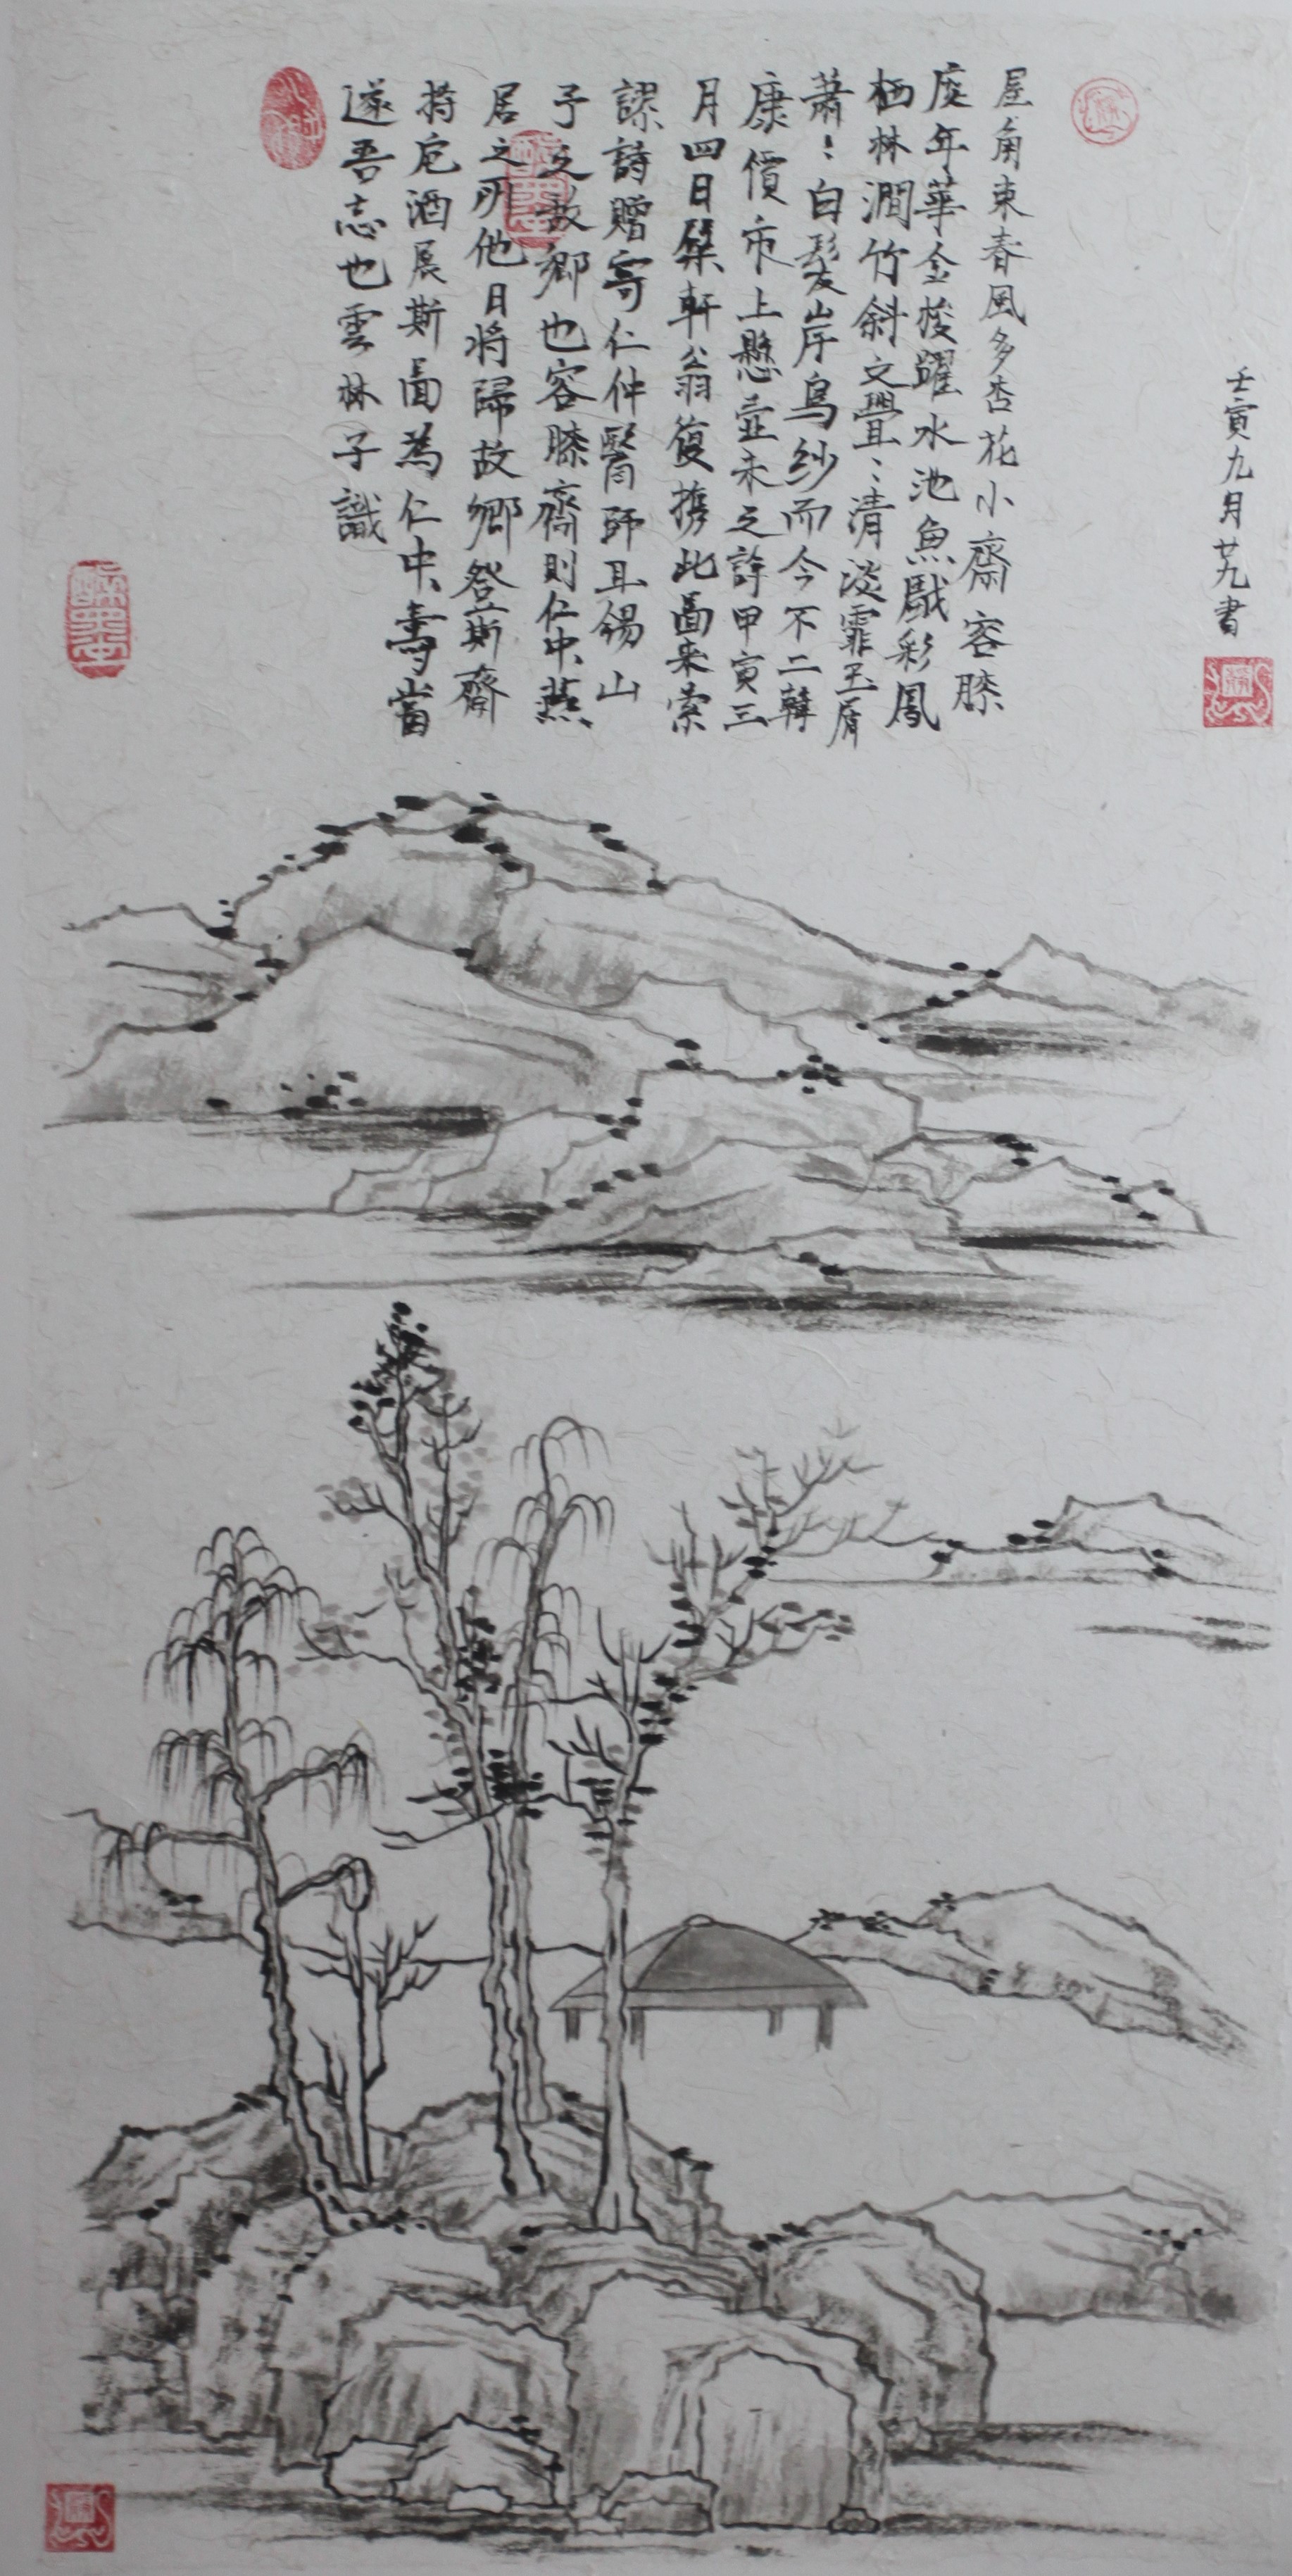 壬寅九月廿九書
屋角東春風多杏花小齋容膝
度年華金梭躍水池魚戲彩鳳
栖林澗竹斜文疊〻清淡霏玉屑
蕭〻白髮岸烏紗而今不二韓
康價市上懸壺未之許甲寅三
月四日檗軒翁復携此圖来索
謬詩贈寄仁仲醫師且錫山
予之故鄉也容膝齋則仁中燕
居之所他日將歸故鄉登斯齋
持卮酒展斯圖為仁中壽當
遂吾志也雲林子識